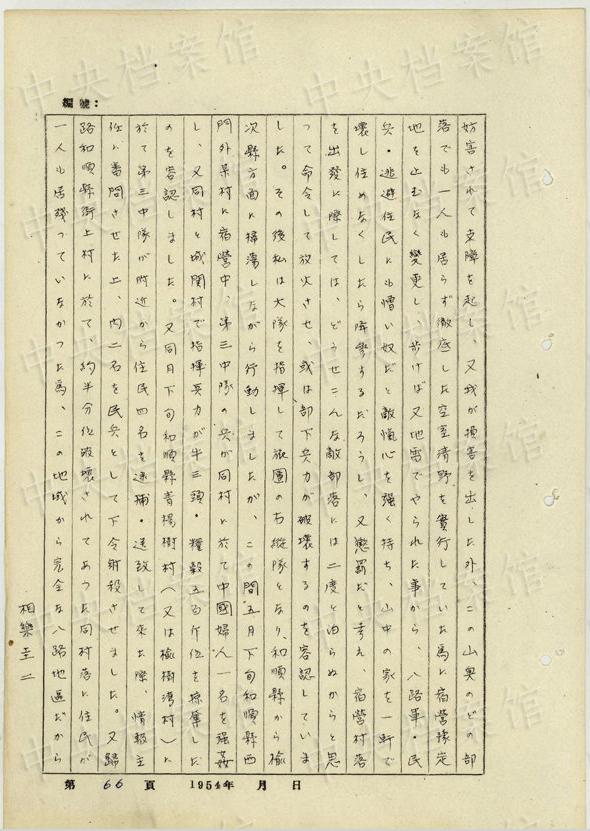 編號：
妨害されて支障を起し、又我が損害を出した外、この山奥のどの部
落でも一人も居らず徹底した空室清野を實行していた為に宿營豫定
地を止むなく變更し、歩けば又地雷でやられた事から、八路軍・民
兵・逃避住民にも憎い奴だと敵愾心を強く持ち、山中の家を一軒で
壊し住めなくしたら降参するだろうし、又懲罰だと考え、宿營村落
を出發に際しては、どうせこんな敵部落には二度と泊らぬからと思
って命令して放火させ、或は部下兵力が破壊するのを容認していま
した。その後私は大隊を指揮して旅團の右縦隊となり、和順縣から榆
次縣方面に掃蕩しながら行動しましたが、この間五月下旬和順縣西
門外某村に宿營中、第三中隊の兵が同村に於て中國婦人一名を強姦
し、又同村と城関村で指揮兵力が牛三頭・糧穀五百斤位を掠奪した
のを容認しました。又同月下旬和順縣青楊樹村（又は榆樹湾村）に
於て第三中隊が附近から住民四名を逮捕・送致して来た際、情報主
任に審問させた上、内二名を民兵として下令射殺させました。又歸
路和順縣街上村に於て、約半分位破壊されてあった同村落に住民が
一人も居残っていなかった為、この地域から完全な八路地區だから
相樂圭二
第 66 頁 1954年 月 日
中央档案馆
中央档案馆
中央档案馆
中央档案馆